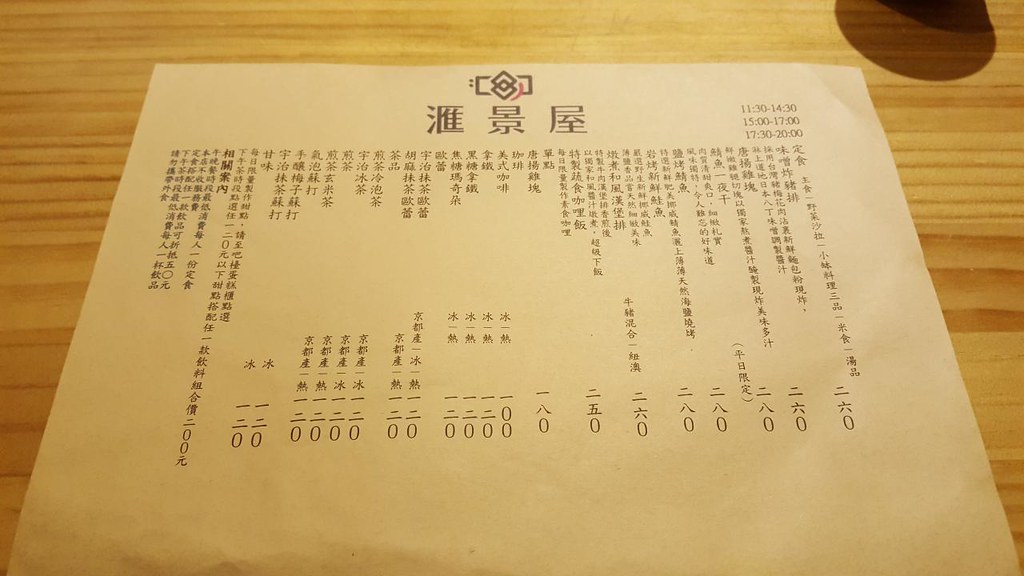 滙景屋
11:30-14:30
15:00-17:00
17:30-20:00
定食 主食|野菜沙拉|小缽料理三品|米食|湯品 二六〇
味噌炸豬排 二六〇
採用台灣豬梅花肉沾裹新鮮麵包粉現炸，
淋上道地日本八丁味噌調製醬汁
唐揚雞塊 二八〇
鮮嫩雞腿切塊以獨家熬煮醬汁醃製現炸美味多汁
鯖魚一夜干 (平日限定) 二八〇
肉質清甜爽口，細緻札實
風味獨特，令人難忘的好味道
鹽烤鯖魚 二八〇
特選新鮮肥美挪威鯖魚灑上薄薄天然海鹽燒烤
岩烤新鮮鮭魚
嚴選野生新鮮挪威鮭魚
薄鹽香品嘗天然細緻美味
燉煮和風漢堡排 牛豬混合|紐澳 二六〇
特製牛肉漢堡排香煎後
以獨家和風醬汁燉煮，超級下飯
特製蔬食咖哩飯 二五〇
每日限量製作素食咖哩
單點
唐揚雞塊 一八〇
咖啡
美式咖啡 冰|熱 一〇〇
拿鐵 冰|熱 一二〇
黑糖拿鐵 冰|熱 一二〇
焦糖瑪奇朵 冰|熱 一二〇
歐蕾
宇治抹茶歐蕾 京都產|冰|熱 一二〇
胡麻抹茶歐蕾
茶品 京都產|熱 一二〇
煎茶冷泡茶
宇治冰茶 京都產|冰 一二〇
煎茶 京都產|冰 一二〇
煎茶玄米茶 京都產|熱 一二〇
氣泡蘇打 京都產|熱 一二〇
手釀梅子蘇打
宇治抹茶蘇打 冰 一二〇
甘味 冰 一二〇
每日限量製作甜點，請至吧檯蛋糕櫃點選
下午茶時段點選任一二〇元以下甜點搭配任一款飲料組合價二〇〇元
相關案內
午晚餐時段最低消費每人一份定食
本店不收服務費
定食搭配任一款飲品可折抵五〇元
下午茶時段最低消費每人一杯飲品
請勿攜帶外食